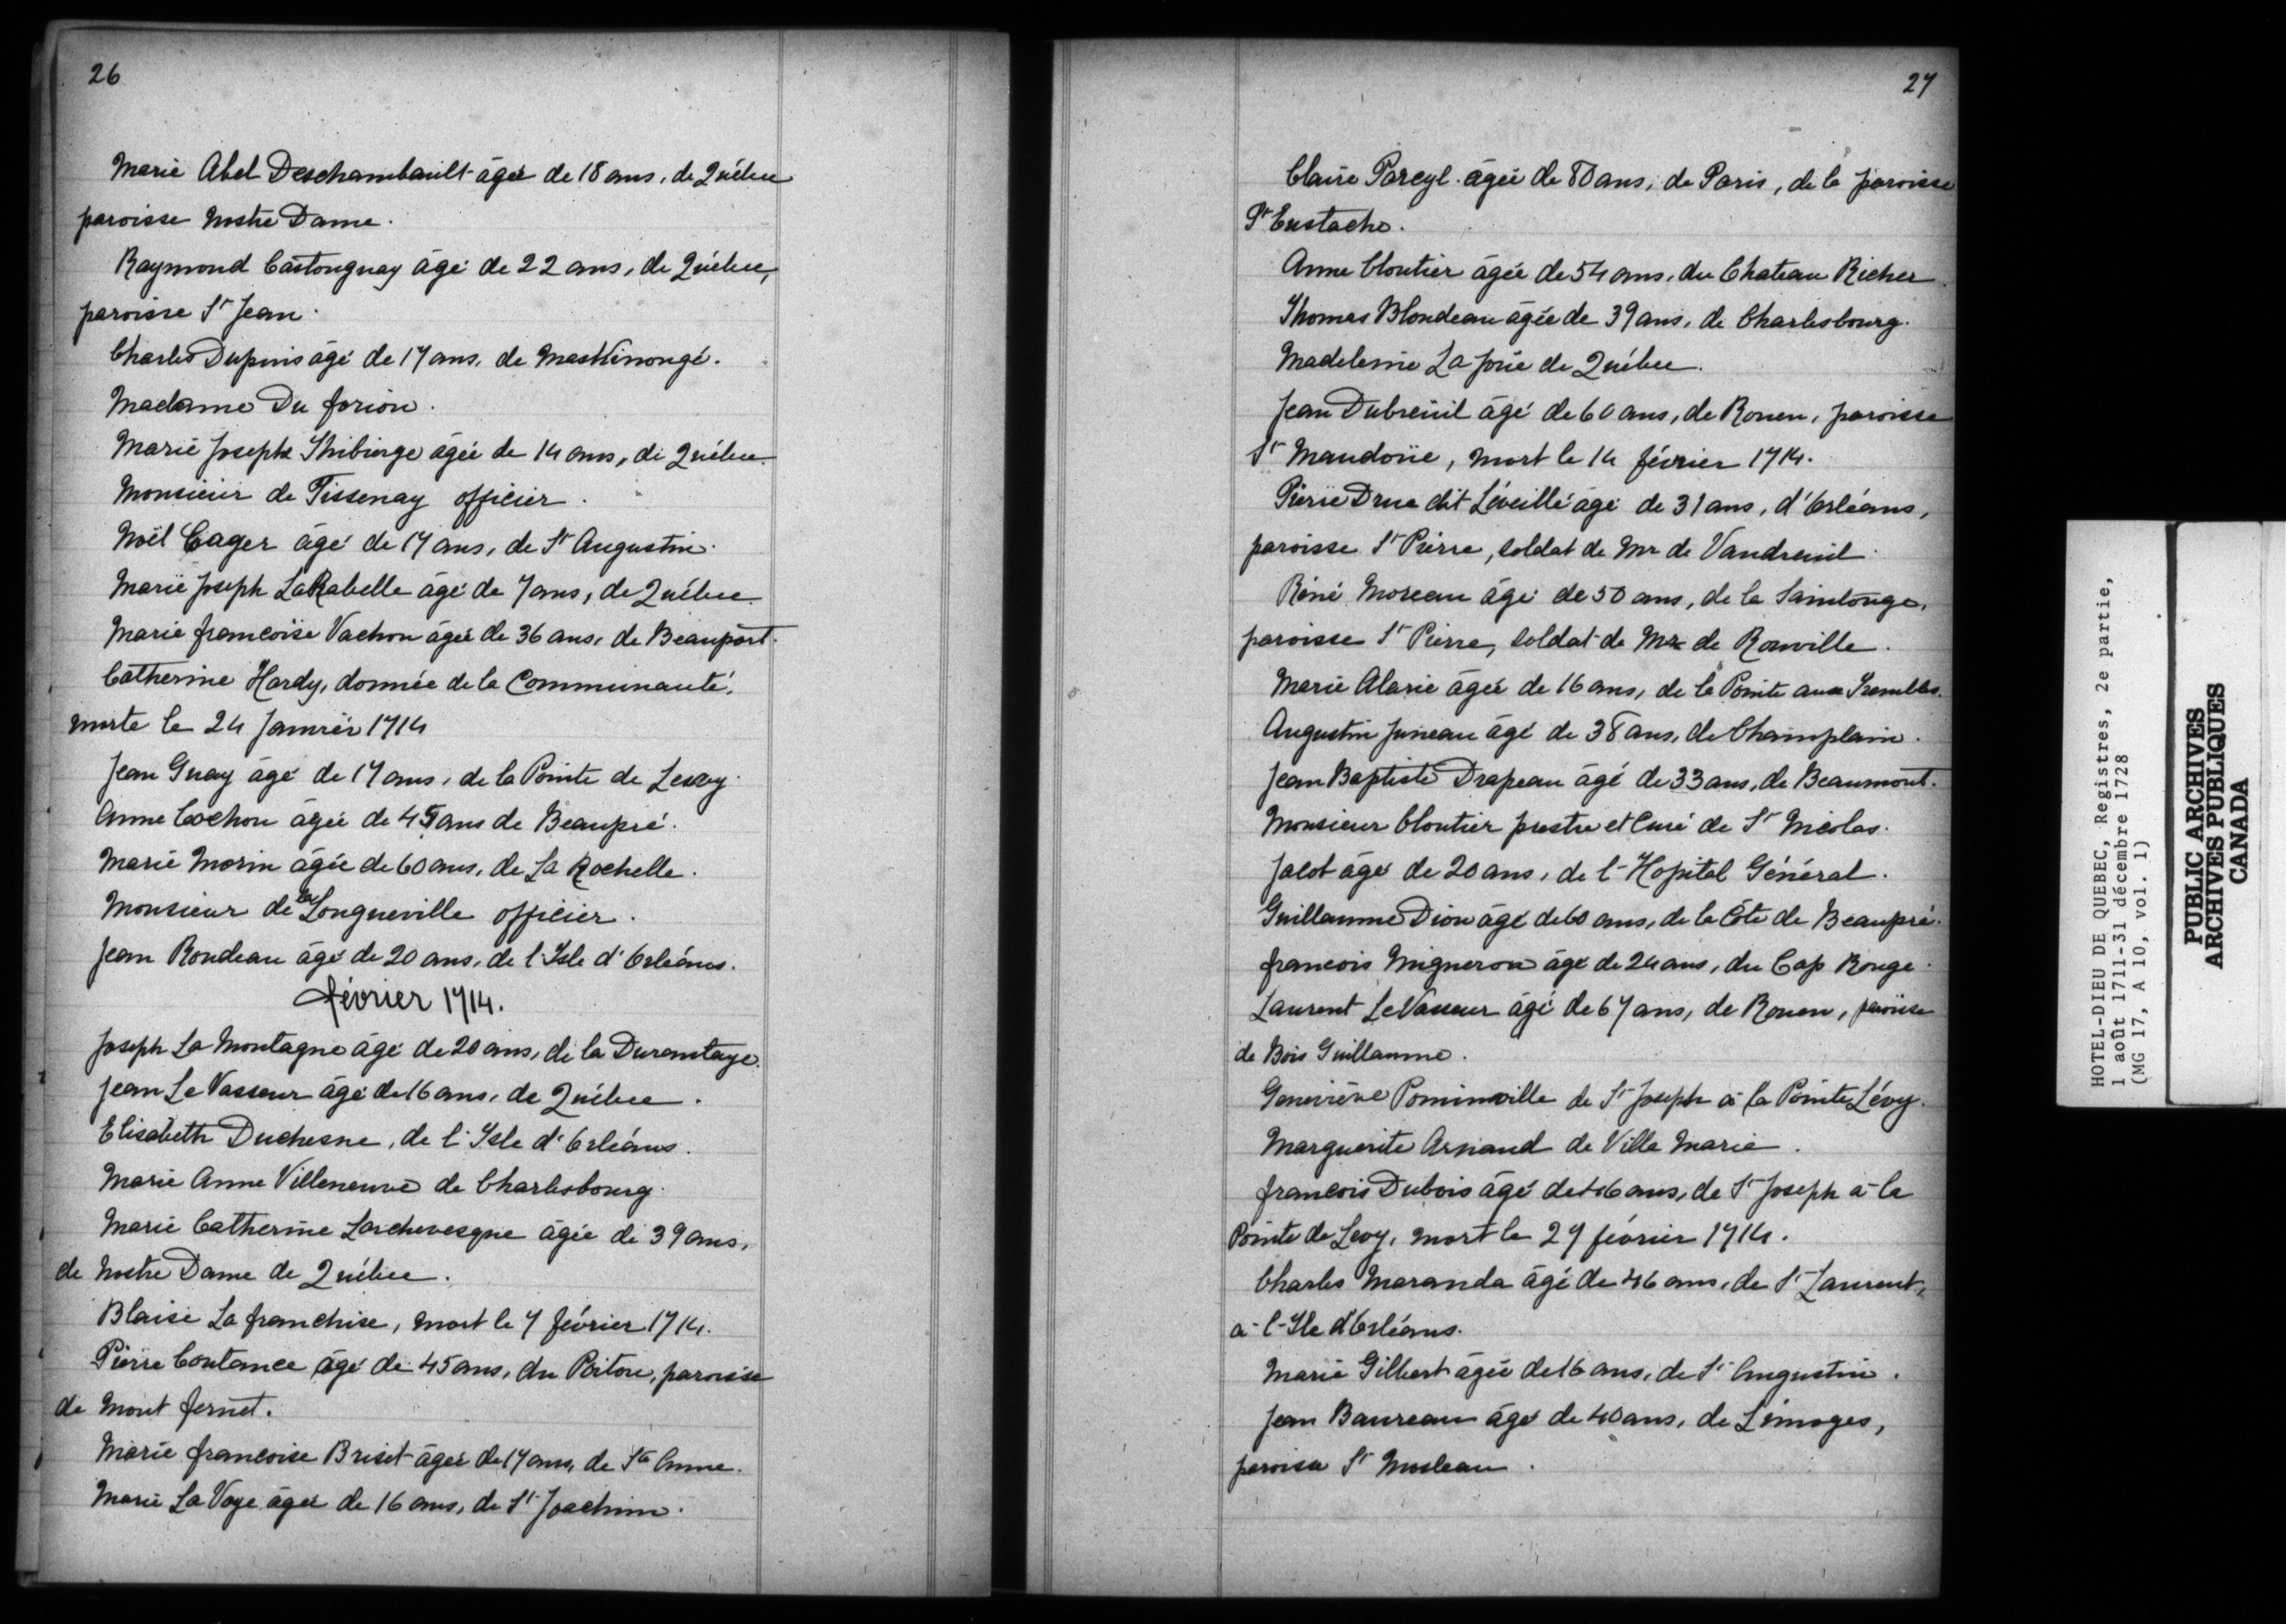 26
Marie Abel Deschambault âgée de 18 ans, de Québec
paroisse Nostre Dame.
Raymond Castonguay âgé de 22 ans, de Québec,
paroisse St Jean.
Charles Dupuis âgé de 17 ans, de Maskinongé.
Madame Du forion.
Marie Joseph Thibierge âgée de 14 ans, de Québec.
Monsieur de Tissenay officier.
Noël Cager âgé de 17 ans, de St Augustin.
Marie Joseph LaRabelle âgé de 7 ans, de Québec.
Marie francoise Vachon âgée de 36 ans, de Beauport.
Catherine Hardy, donnée de la Communauté,
morte le 24 Janvier 1714
Jean Guay âgé de 17 ans, de la Pointe de Levy.
Anne Cochon âgée de 45 ans de Beaupré.
Marie Morin âgée de 60 ans, de La Rochelle.
Monsieur de la Longueville officier.
Jean Rondeau âgé de 20 ans, de l'Isle d'Orléans.
février 1714.
Joseph La Montagne âgé de 20 ans, de la Durantaye.
Jean Le Vasseur âgé de 16 ans, de Québec.
Elisabeth Duchesne, de l'Isle d'Orléans.
Marie Anne Villeneuve de Charlesbourg.
Marie Catherine Larchevesque âgée de 39 ans,
de Nostre Dame de Québec.
Blaise La franchise, mort le 7 février 1714.
Pierre Coutance âgé de 45 ans, du Poitou, paroisse
de Mont fernet.
Marie francoise Briset âgée de 17 ans, de Ste Anne.
Marie La Voye âgée de 16 ans, de St Joachim.
27
Claire Parcyl âgée de 80 ans, de Paris, de la paroisse
St Eustache.
Anne Cloutier âgée de 54 ans, du Chateau Richer.
Thomas Blondeau âgée de 39 ans, de Charlesbourg.
Madeleine La Joüe de Québec.
Jean Dubreuil âgé de 60 ans, de Rouen, paroisse
St Mandoüe, mort le 14 février 1714.
Pierre Drue dit Léveillé âgé de 31 ans, d'Orléans,
paroisse St Pierre, soldat de Mr de Vaudreuil.
Réné Moreau âgé de 50 ans, de la Saintonge,
paroisse St Pierre, soldat de Mr de Rouville.
Marie Alarie âgée de 16 ans, de la Pointe aux Trembles.
Augustin Juneau âgé de 38 ans, de Champlain.
Jean Baptiste Drapeau âgé de 33 ans, de Beaumont.
Monsieur Cloutier prestre et Curé de St Nicolas.
Jacot âgé de 20 ans, de l'Hopital Général.
Guillaume Dion âgé de 60 ans, de la Côte de Beaupré.
francois Migneron âgé de 24 ans, du Cap Rouge.
Laurent LeVasseur âgé de 67 ans, de Rouen, paroisse
de Bois Guillaume.
Geneviève Pominville de St Joseph à la Pointe Lévy.
Marguerite Arnaud de Ville Marie.
francois Dubois âgé de 46 ans, de St Joseph à la
Pointe de Levy, mort le 27 février 1714.
Charles Maranda âgé de 46 ans, de St Laurent,
à l'Ile d'Orléans.
Marie Gilbert âgée de 16 ans, de St Augustin.
Jean Baureau âgé de 40 ans, de Limoges,
paroisse St
HOTEL-DIEU DE QUEBEC, Registres, 2e partie,
1 août 1711-31 décembre 1728
(MG 17, A 10, vol. 1)
PUBLIC ARCHIVES
ARCHIVES PUBLIQUES
CANADA